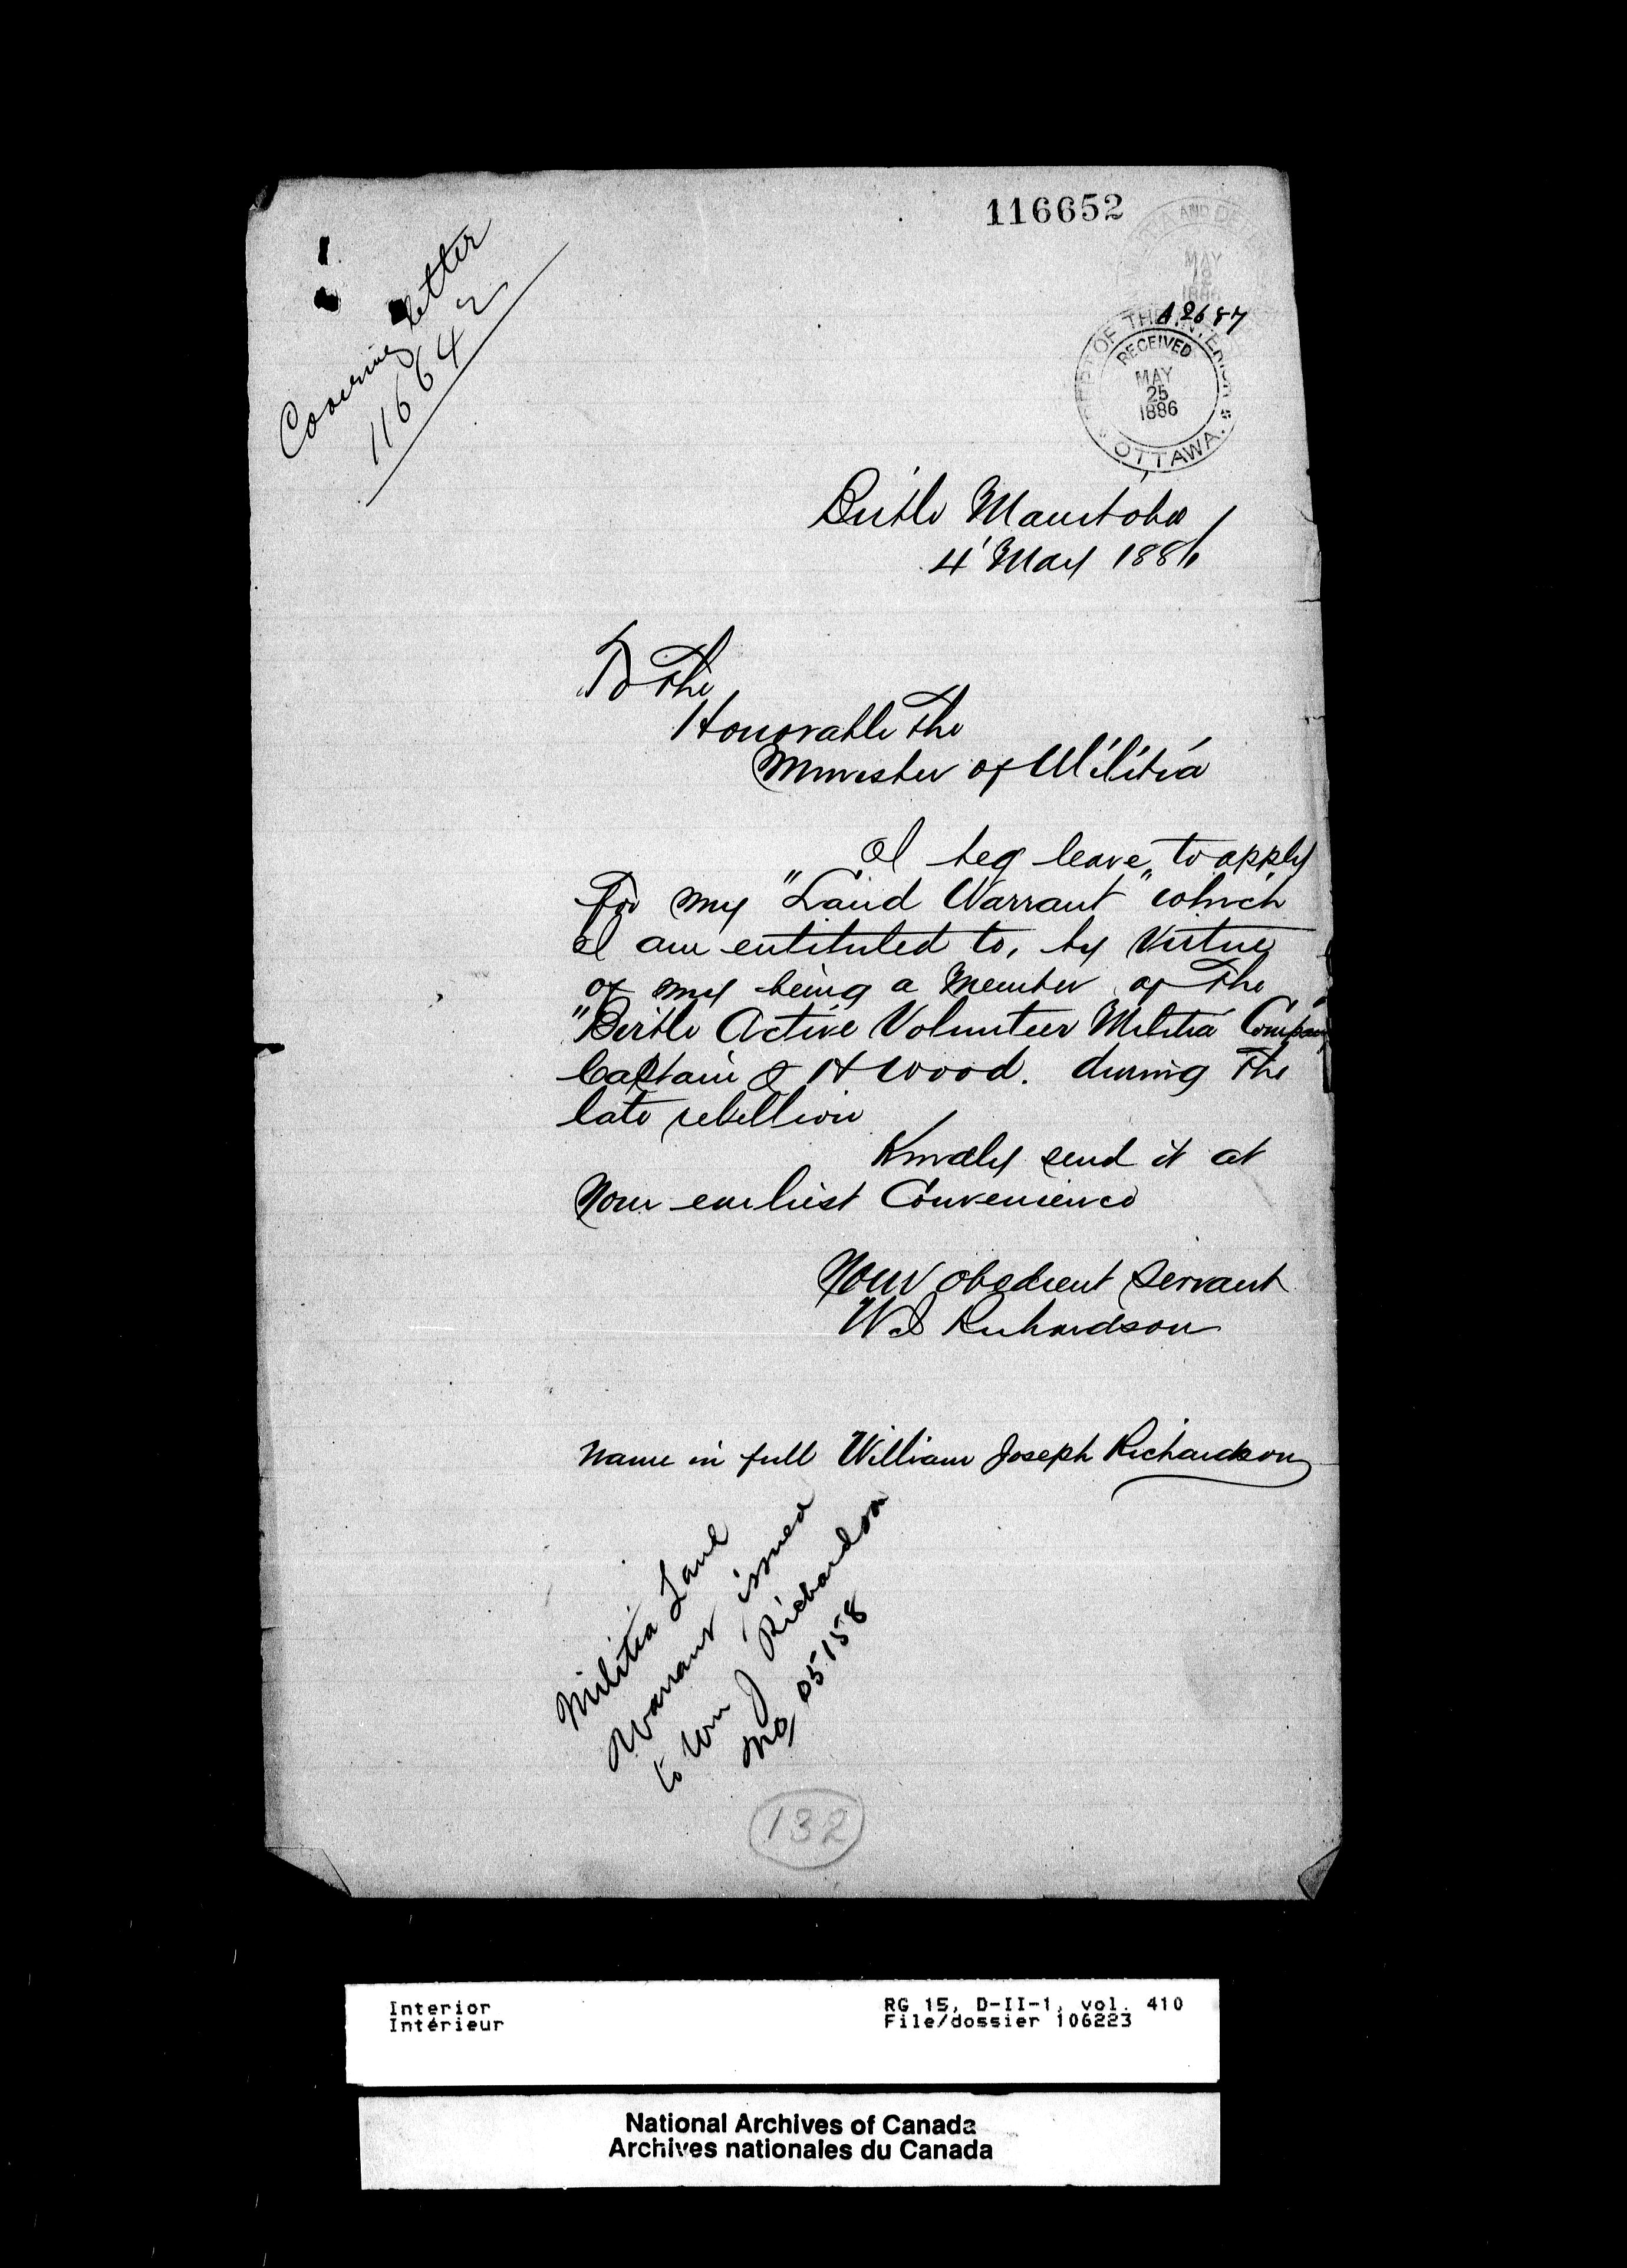 116652
Covering Letter
116642
MILITIA AND DEFENCE
MAY
18
1886
A2687
DEPT OF THE INTERIOR
RECEIVED
MAY
25
1886
OTTAWA.
Birtle Manitoba
4' May 1886
To The
Honorable The
Minister of Militia
I beg leave to apply
for my "Land Warrant" which
I am entituled to, by virtue
of my being a Member of The
"Birtle Active Volunteer Militia Company
Captain J H Wood. during The
late rebellion
Kindly send it at
Your earliest Convenience
Your obedient Servant
W J Richardson
Name in full William Joseph Richardson
Militia Land
Warrant issued
to Wm J Richardson
No 05158
132
Interior
Intérieur
RG 15, D-II-1, vol. 410
File/dossier 106223
National Archives of Canada
Archives nationales du Canada